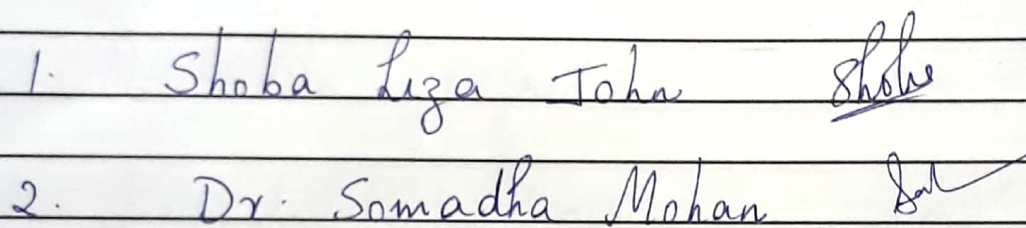 1. Shoba Liza John Shoba
2. Dr. Somadha Mohan